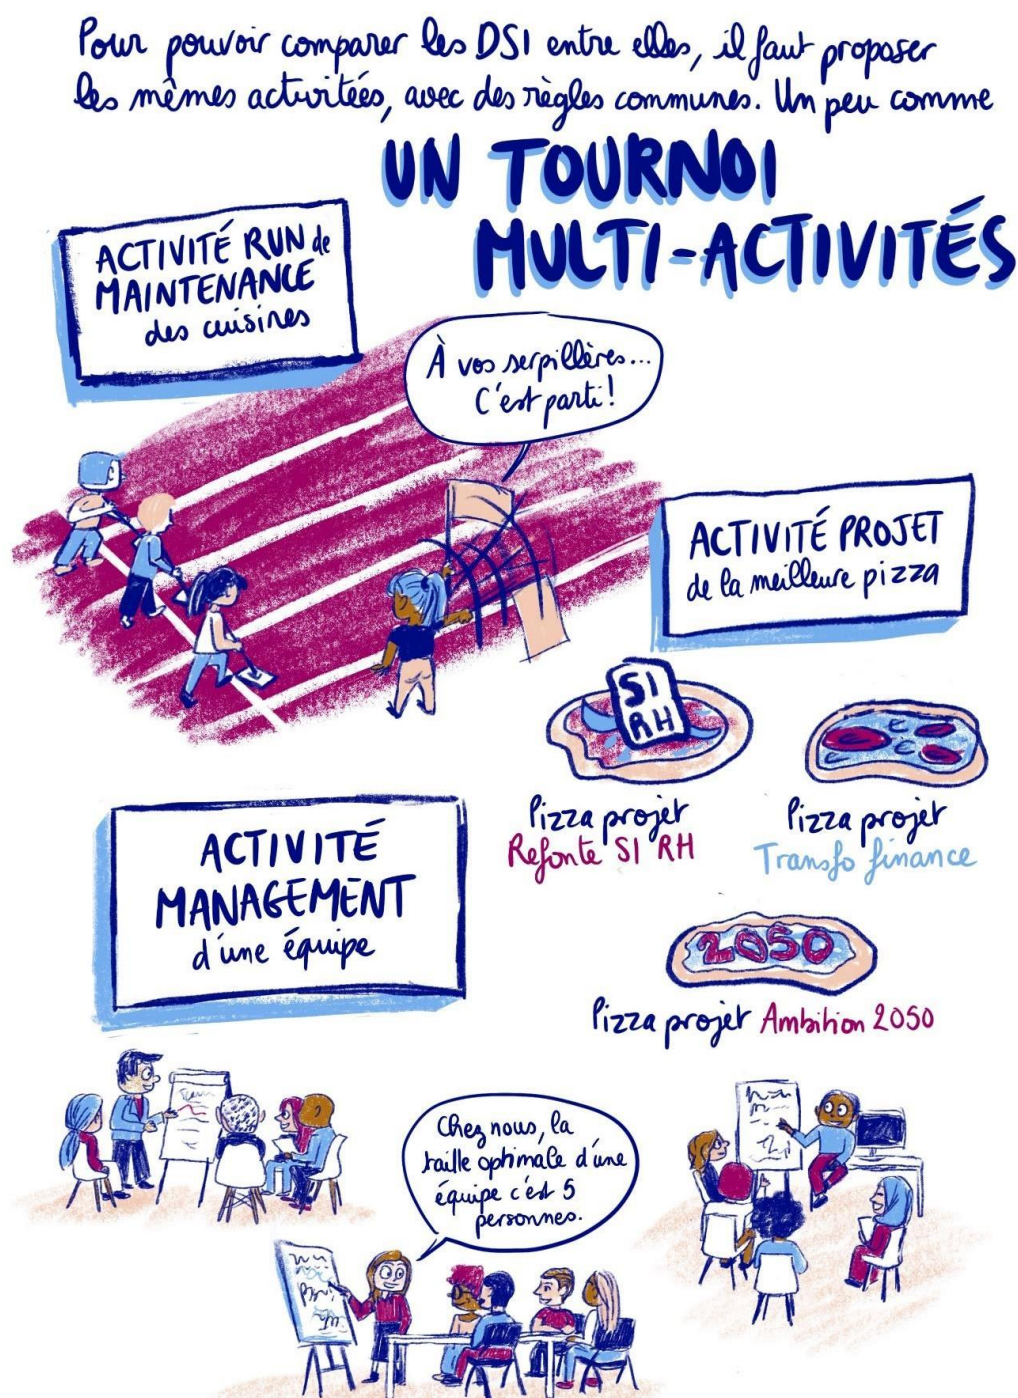 Pour pouvoir comparer les DSI entre elles, il faut proposer
les mêmes activitées, avec des règles communes. Un peu comme
UN TOURNOI
MULTI-ACTIVITÉS
ACTIVITÉ RUN de
MAINTENANCE
des cuisines
À vos serpillères...
C'est parti!
ACTIVITÉ PROJET
de la meilleure pizza
SI
RH
Pizza projet
Refonte SI RH
Pizza projet
Transfo finance
2050
Pizza projet Ambition 2050
ACTIVITÉ
MANAGEMENT
d'une équipe
Chez nous, la
taille optimale d'une
équipe c'est 5
personnes.